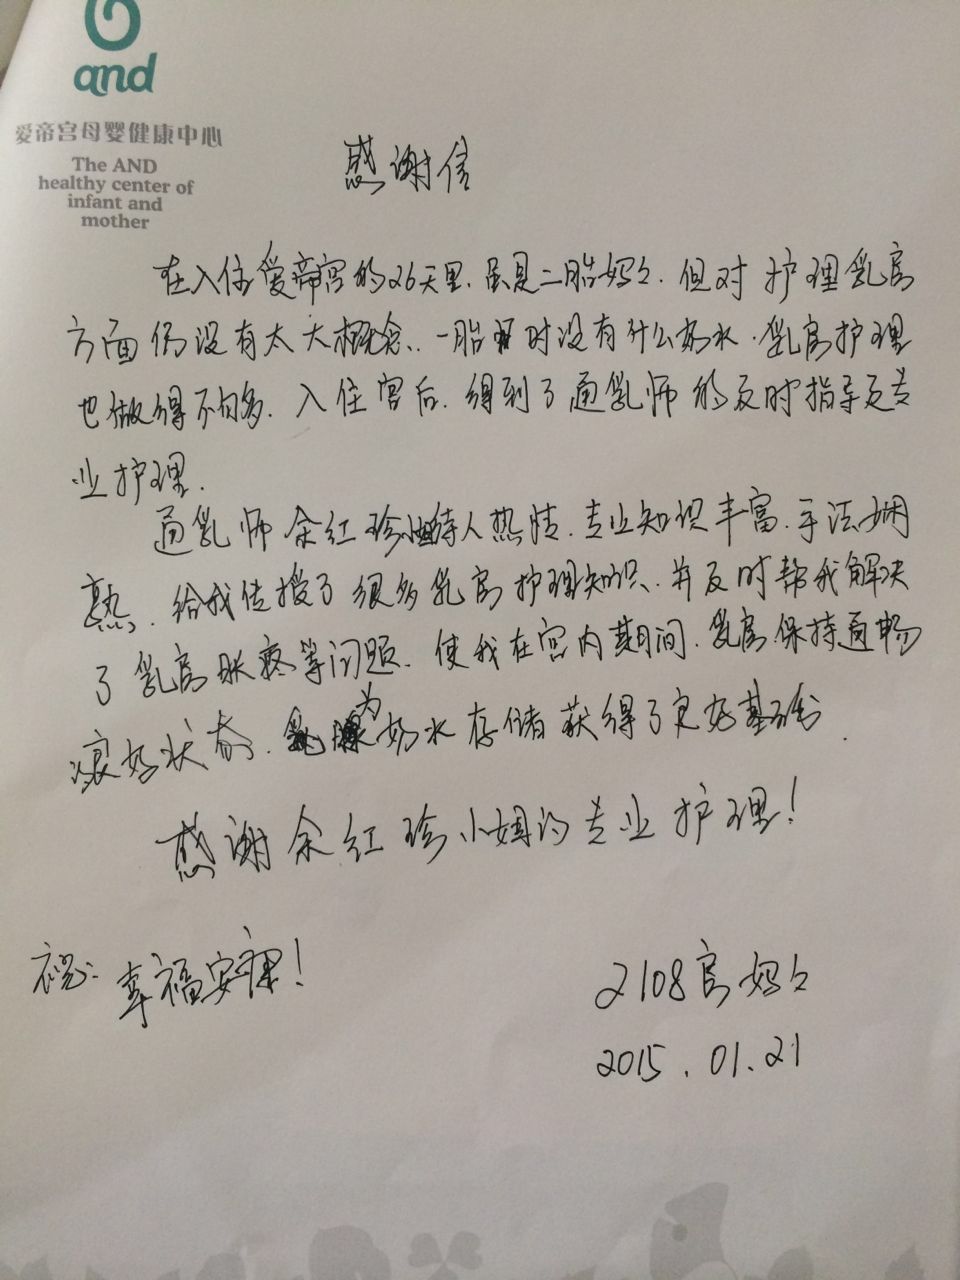 and
爱帝宫母婴健康中心
The AND
healthy center of
infant and
mother
感谢信
在入住爱帝宫的26天里,虽是二胎妈々,但对护理乳房
方面仍没有太大概念,一胎时没有什么奶水,乳房护理
也做得不多,入住宫后,得到了通乳师的及时指导及专
业护理.
通乳师余红珍待人热情,专业知识丰富,手法娴
熟,给我传授了很多乳房护理知识,并及时帮我解决
了乳房胀疼等问题,使我在宫内期间,乳房保持通畅
良好状态,为奶水存储获得了良好基础.
感谢余红珍小姐的专业护理!
祝: 幸福安康!
2108房妈々
2015.01.21